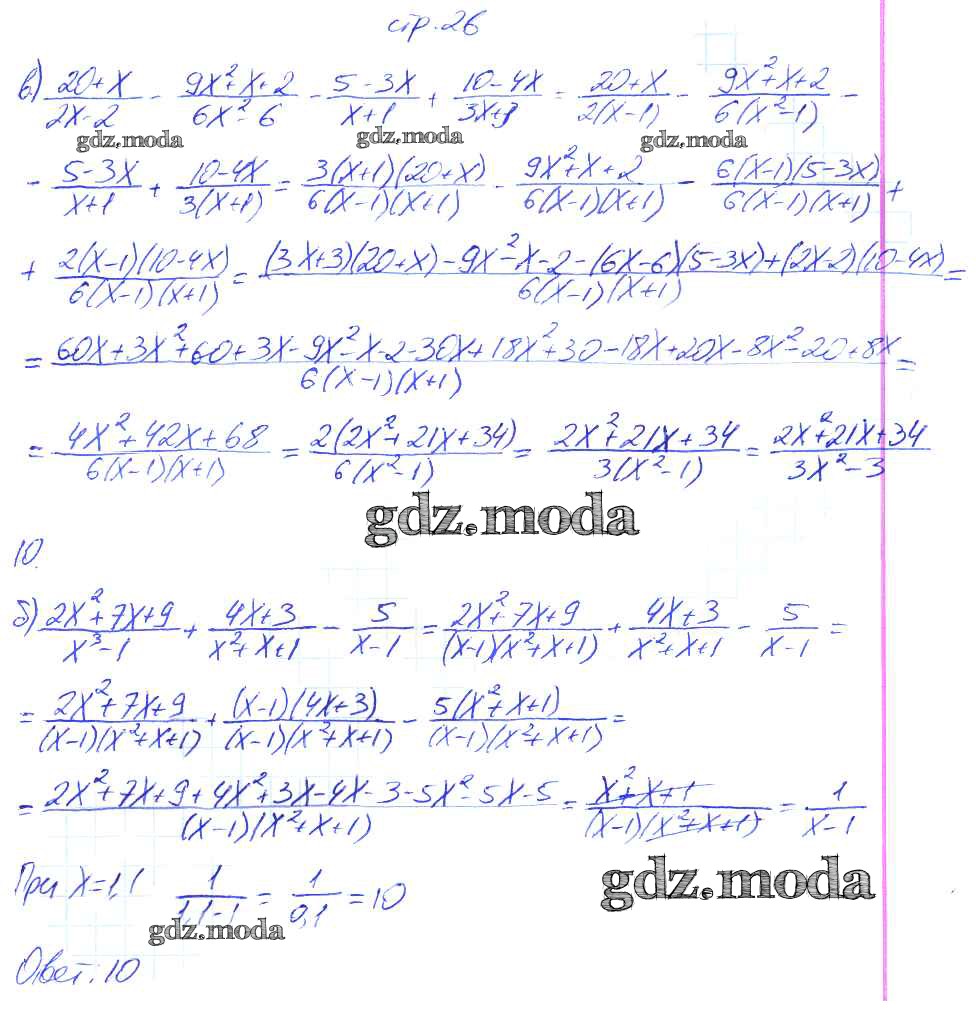 стр. 26
в) (20+x)/(2x-2) - (9x²+x+2)/(6x²-6) - (5-3x)/(x+1) + (10-4x)/(3x+3) = (20+x)/(2(x-1)) - (9x²+x+2)/(6(x²-1)) -
gdz.moda gdz.moda gdz.moda
- (5-3x)/(x+1) + (10-4x)/(3(x+1)) = (3(x+1)(20+x))/(6(x-1)(x+1)) - (9x²+x+2)/(6(x-1)(x+1)) - (6(x-1)(5-3x))/(6(x-1)(x+1)) +
+ (2(x-1)(10-4x))/(6(x-1)(x+1)) = ((3x+3)(20+x)-9x²-x-2-(6x-6)(5-3x)+(2x-2)(10-4x))/(6(x-1)(x+1)) =
= (60x+3x²+60+3x-9x²-x-2-30x+18x²+30-18x+20x-8x²-20+8x)/(6(x-1)(x+1)) =
= (4x²+42x+68)/(6(x-1)(x+1)) = (2(2x²+21x+34))/(6(x²-1)) = (2x²+21x+34)/(3(x²-1)) = (2x²+21x+34)/(3x²-3)
gdz.moda
10.
б) (2x²+7x+9)/(x³-1) + (4x+3)/(x²+x+1) - 5/(x-1) = (2x²+7x+9)/((x-1)(x²+x+1)) + (4x+3)/(x²+x+1) - 5/(x-1) =
= (2x²+7x+9)/((x-1)(x²+x+1)) + ((x-1)(4x+3))/((x-1)(x²+x+1)) - (5(x²+x+1))/((x-1)(x²+x+1)) =
= (2x²+7x+9+4x²+3x-4x-3-5x²-5x-5)/((x-1)(x²+x+1)) = (x²+x+1)/((x-1)(x²+x+1)) = 1/(x-1)
gdz.moda
При x=1,1 1/(1,1-1) = 1/(0,1) = 10
gdz.moda
Ответ: 10